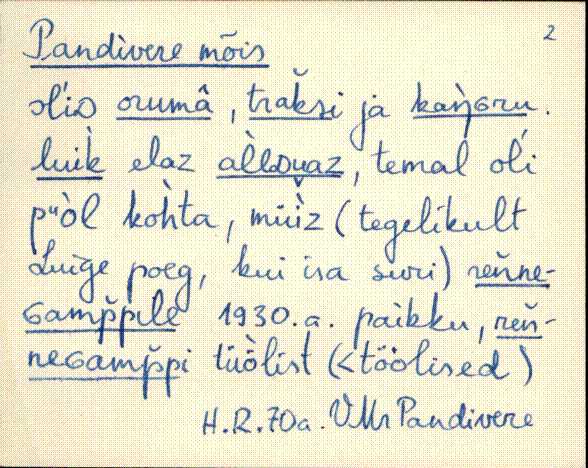 2
Pandivere mõis
oĺiᴅ orumâ, traḱsi ja kaǹɢru.
luìk elaz aìᴅᴅuaz, temal oĺi
pᵘòl kòhta, müìz (tegelikult
Luige poeg, kui isa suri) reǹne-
ɢamp̌pile 1930.a. paikku, reǹ-
neɢamp̌pi tüòlist (<töölised)
H.R. 70a. VMr Pandivere